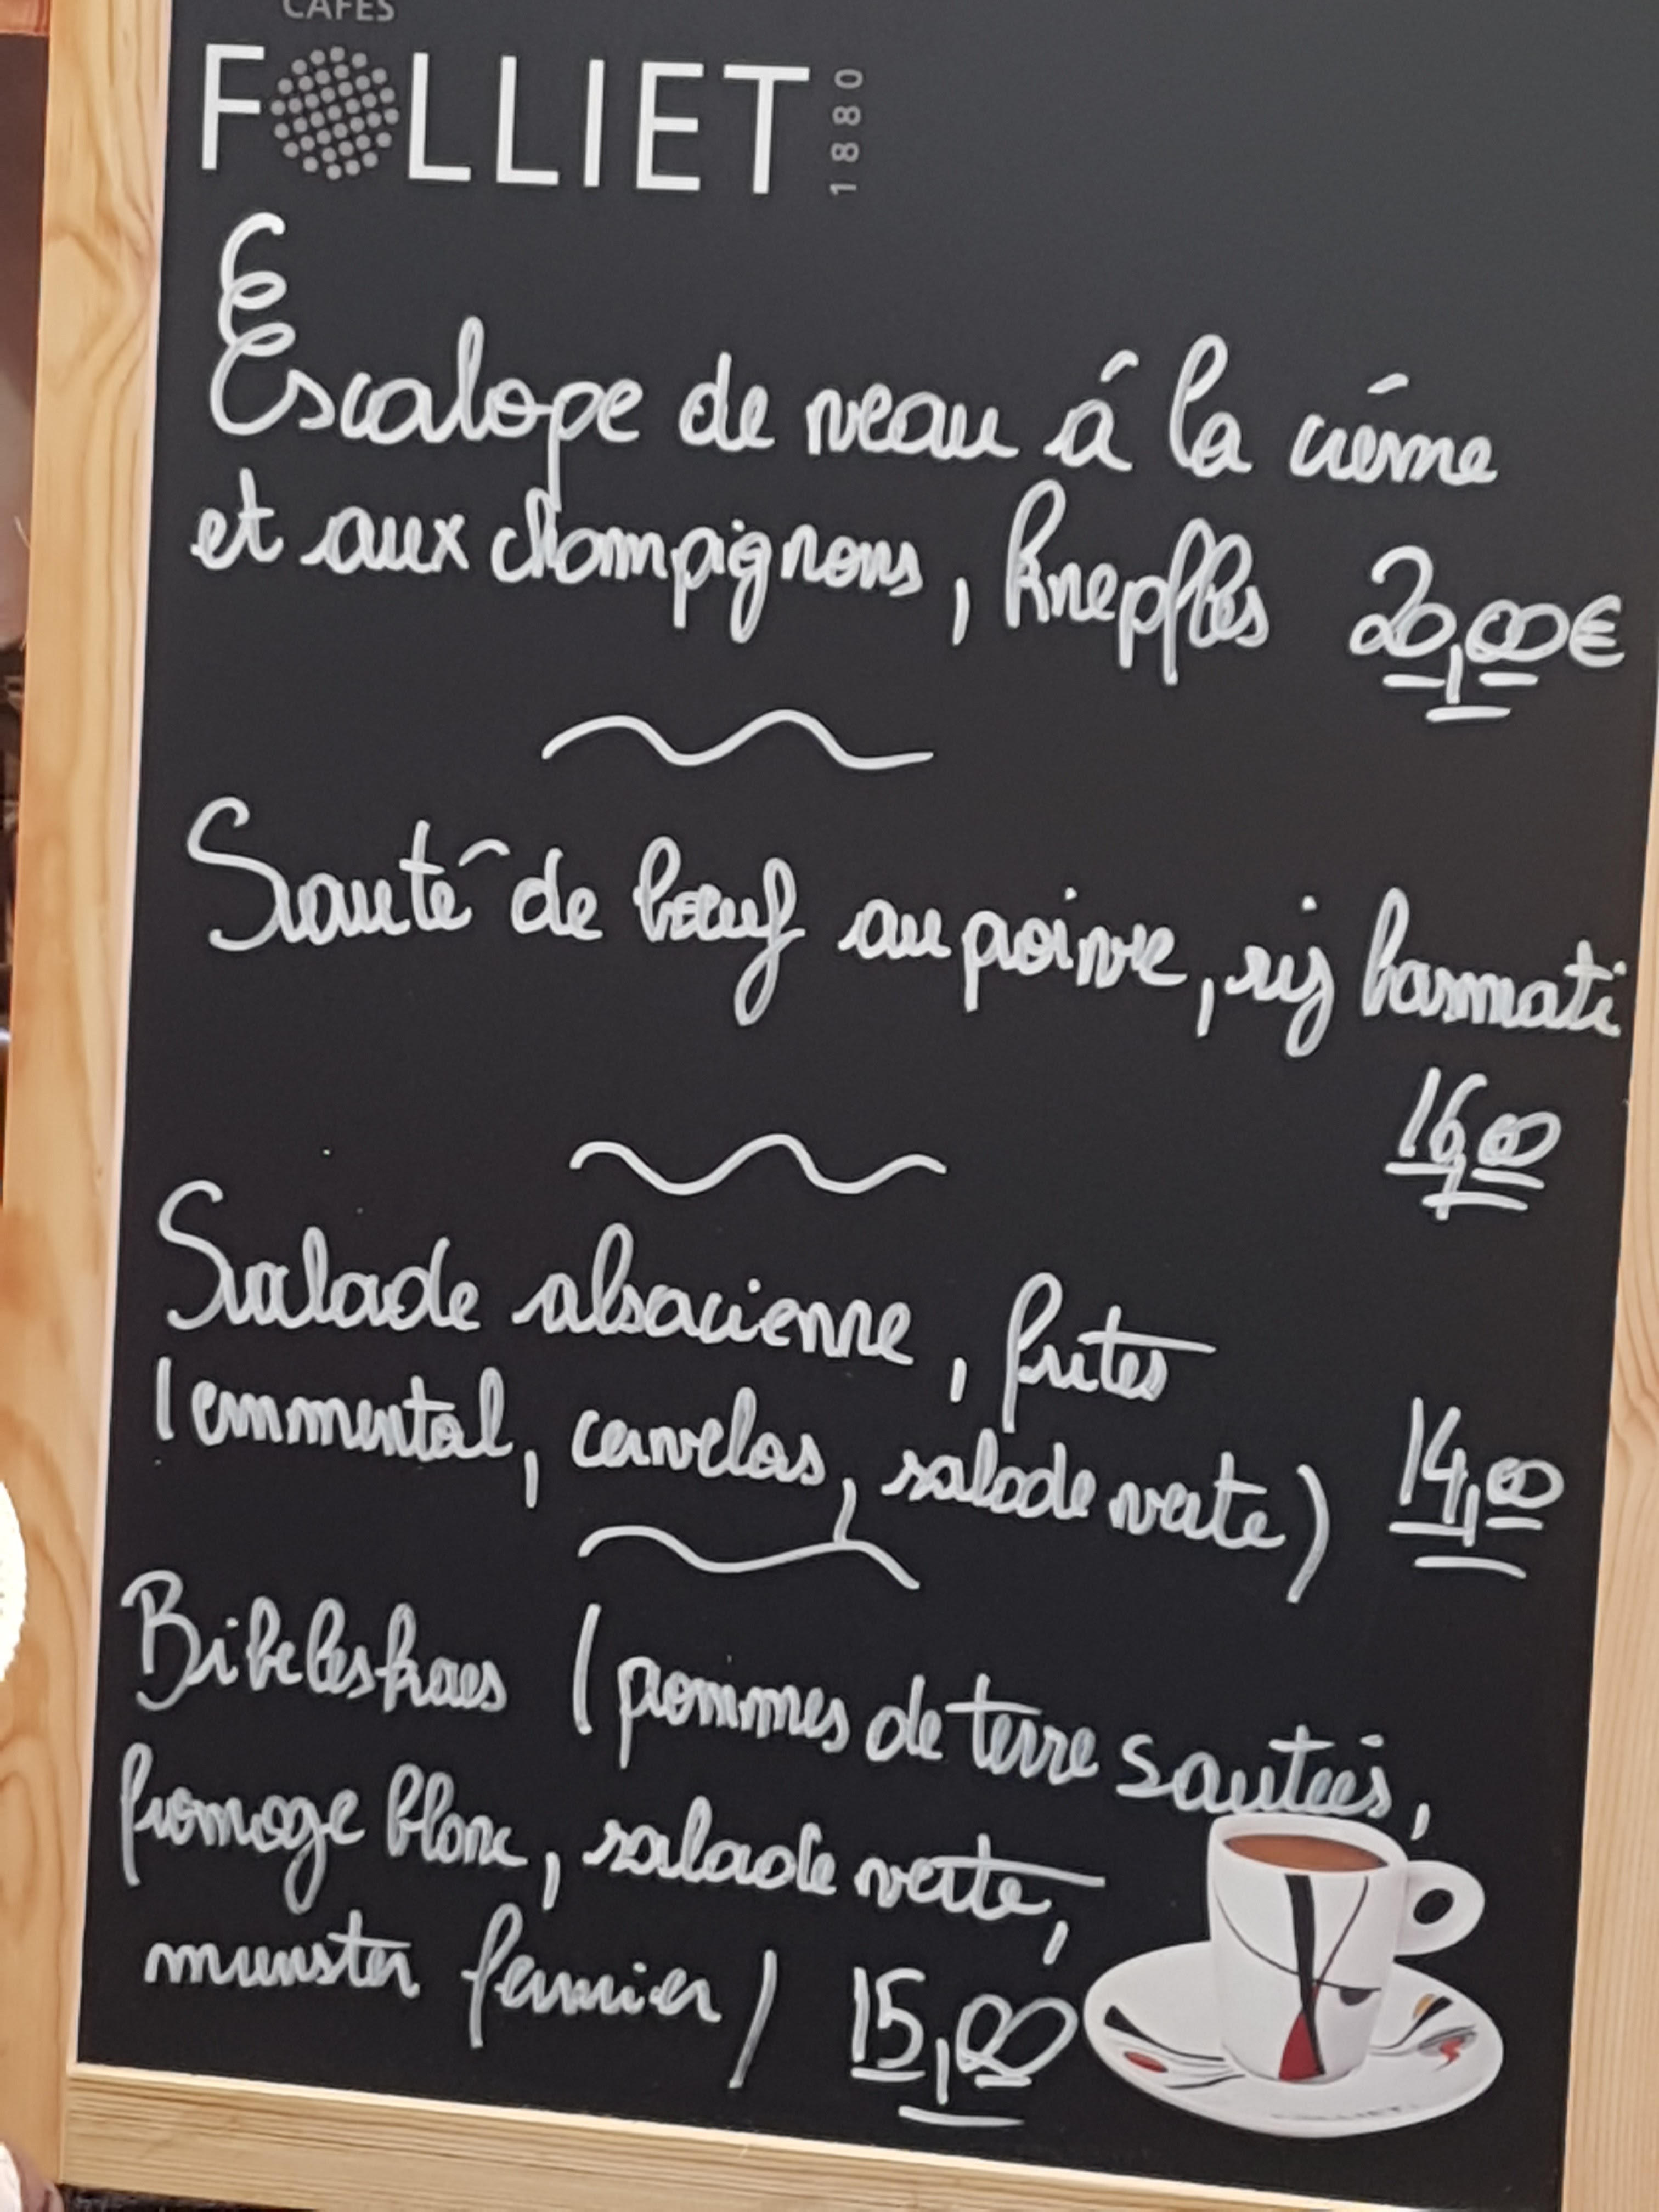 CAFÉS
FOLLIET 1880
E
Escalope de veau á la créme
et aux champignons, knepfles 20,00€
Sauté de bœuf au poivre, riz basmati
16,00
Salade alsacienne, frites
(emmental, cervelas, salade verte) 14,00
Bibeleskaes (pommes de terre sautées,
fromage blanc, salade verte,
munster fermier) 15,00